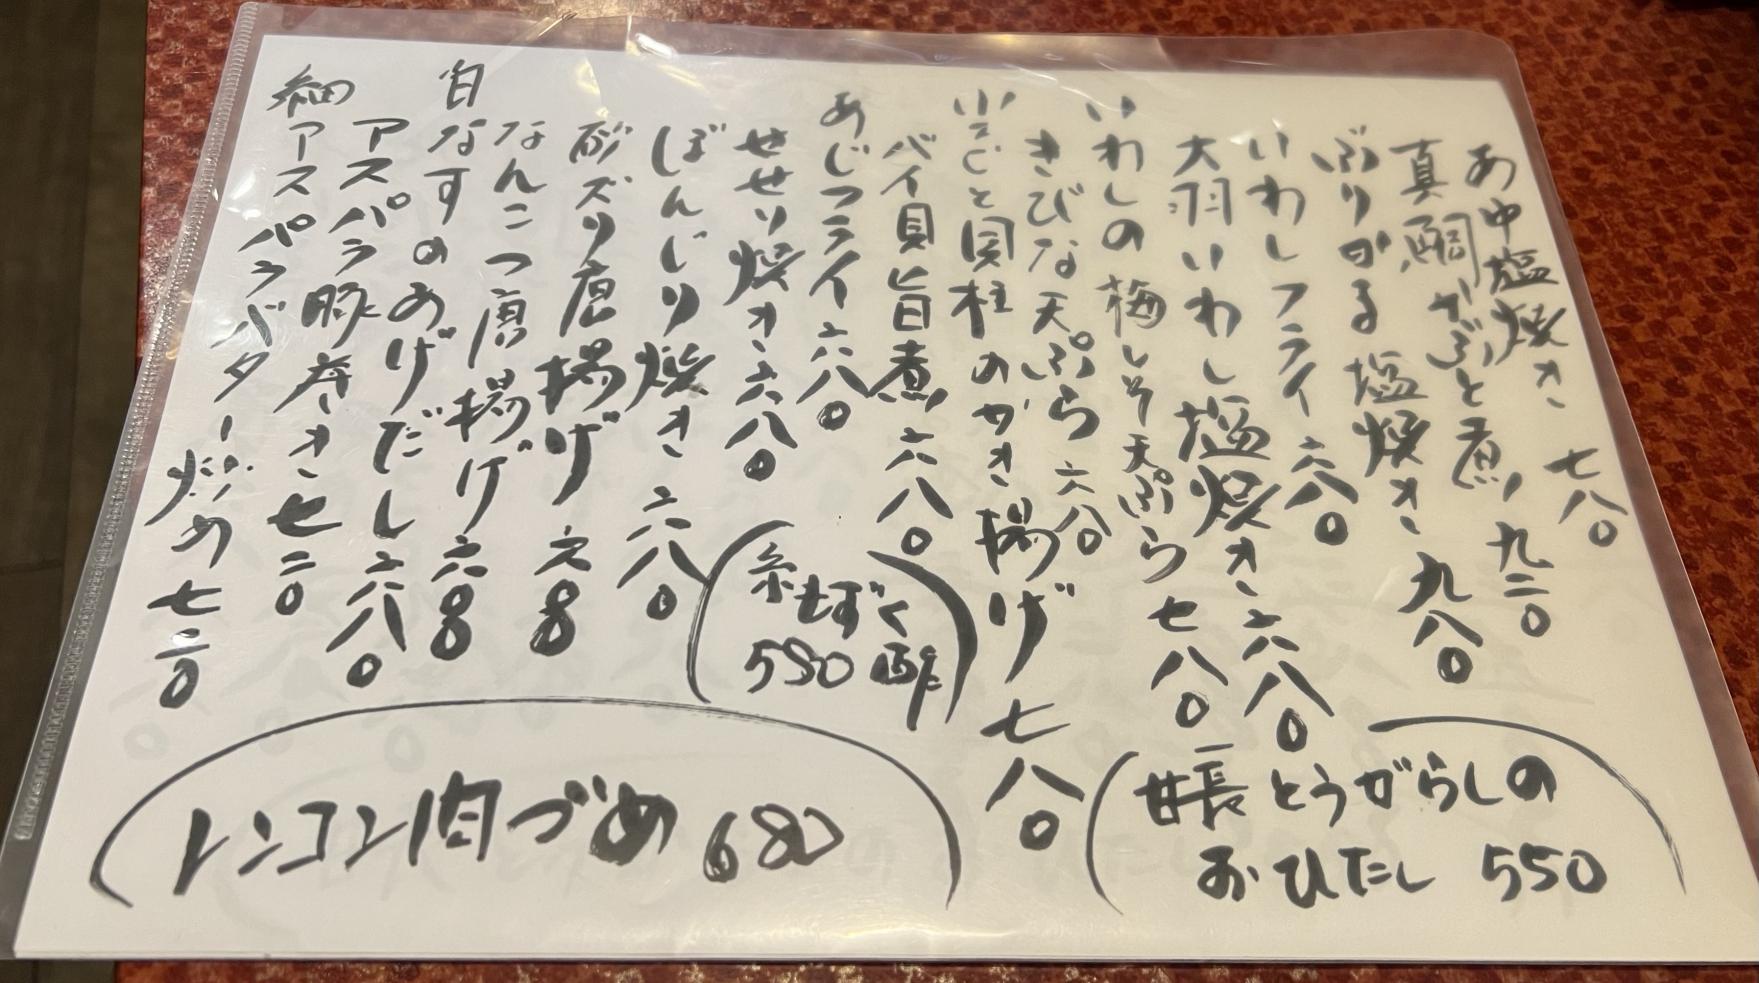 あ中塩焼き 七八〇
真鯛かぶと煮 九二〇
ぶりかま塩焼き 九八〇
いわしフライ 六八〇
大羽いわし塩焼き 六八〇
いわしの梅しそ天ぷら 七八〇
きびな天ぷら 六八〇
と貝柱のかき揚げ 七八〇
バイ貝旨煮 六八〇
あじフライ 六八〇
せせり焼き 六八〇
ぼんじり焼き 六八〇
砂ズリ唐揚げ
なんこつ唐揚げ
自
なすのあげだし 六八〇
アスパラ豚巻き 七二〇
細アスパラバター炒め 七二〇
糸もずく
550
甘長とうがらしの
おひたし 550
レンコン肉づめ 680